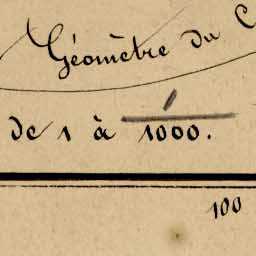 Géomètre du C
de 1 à 1000.
100